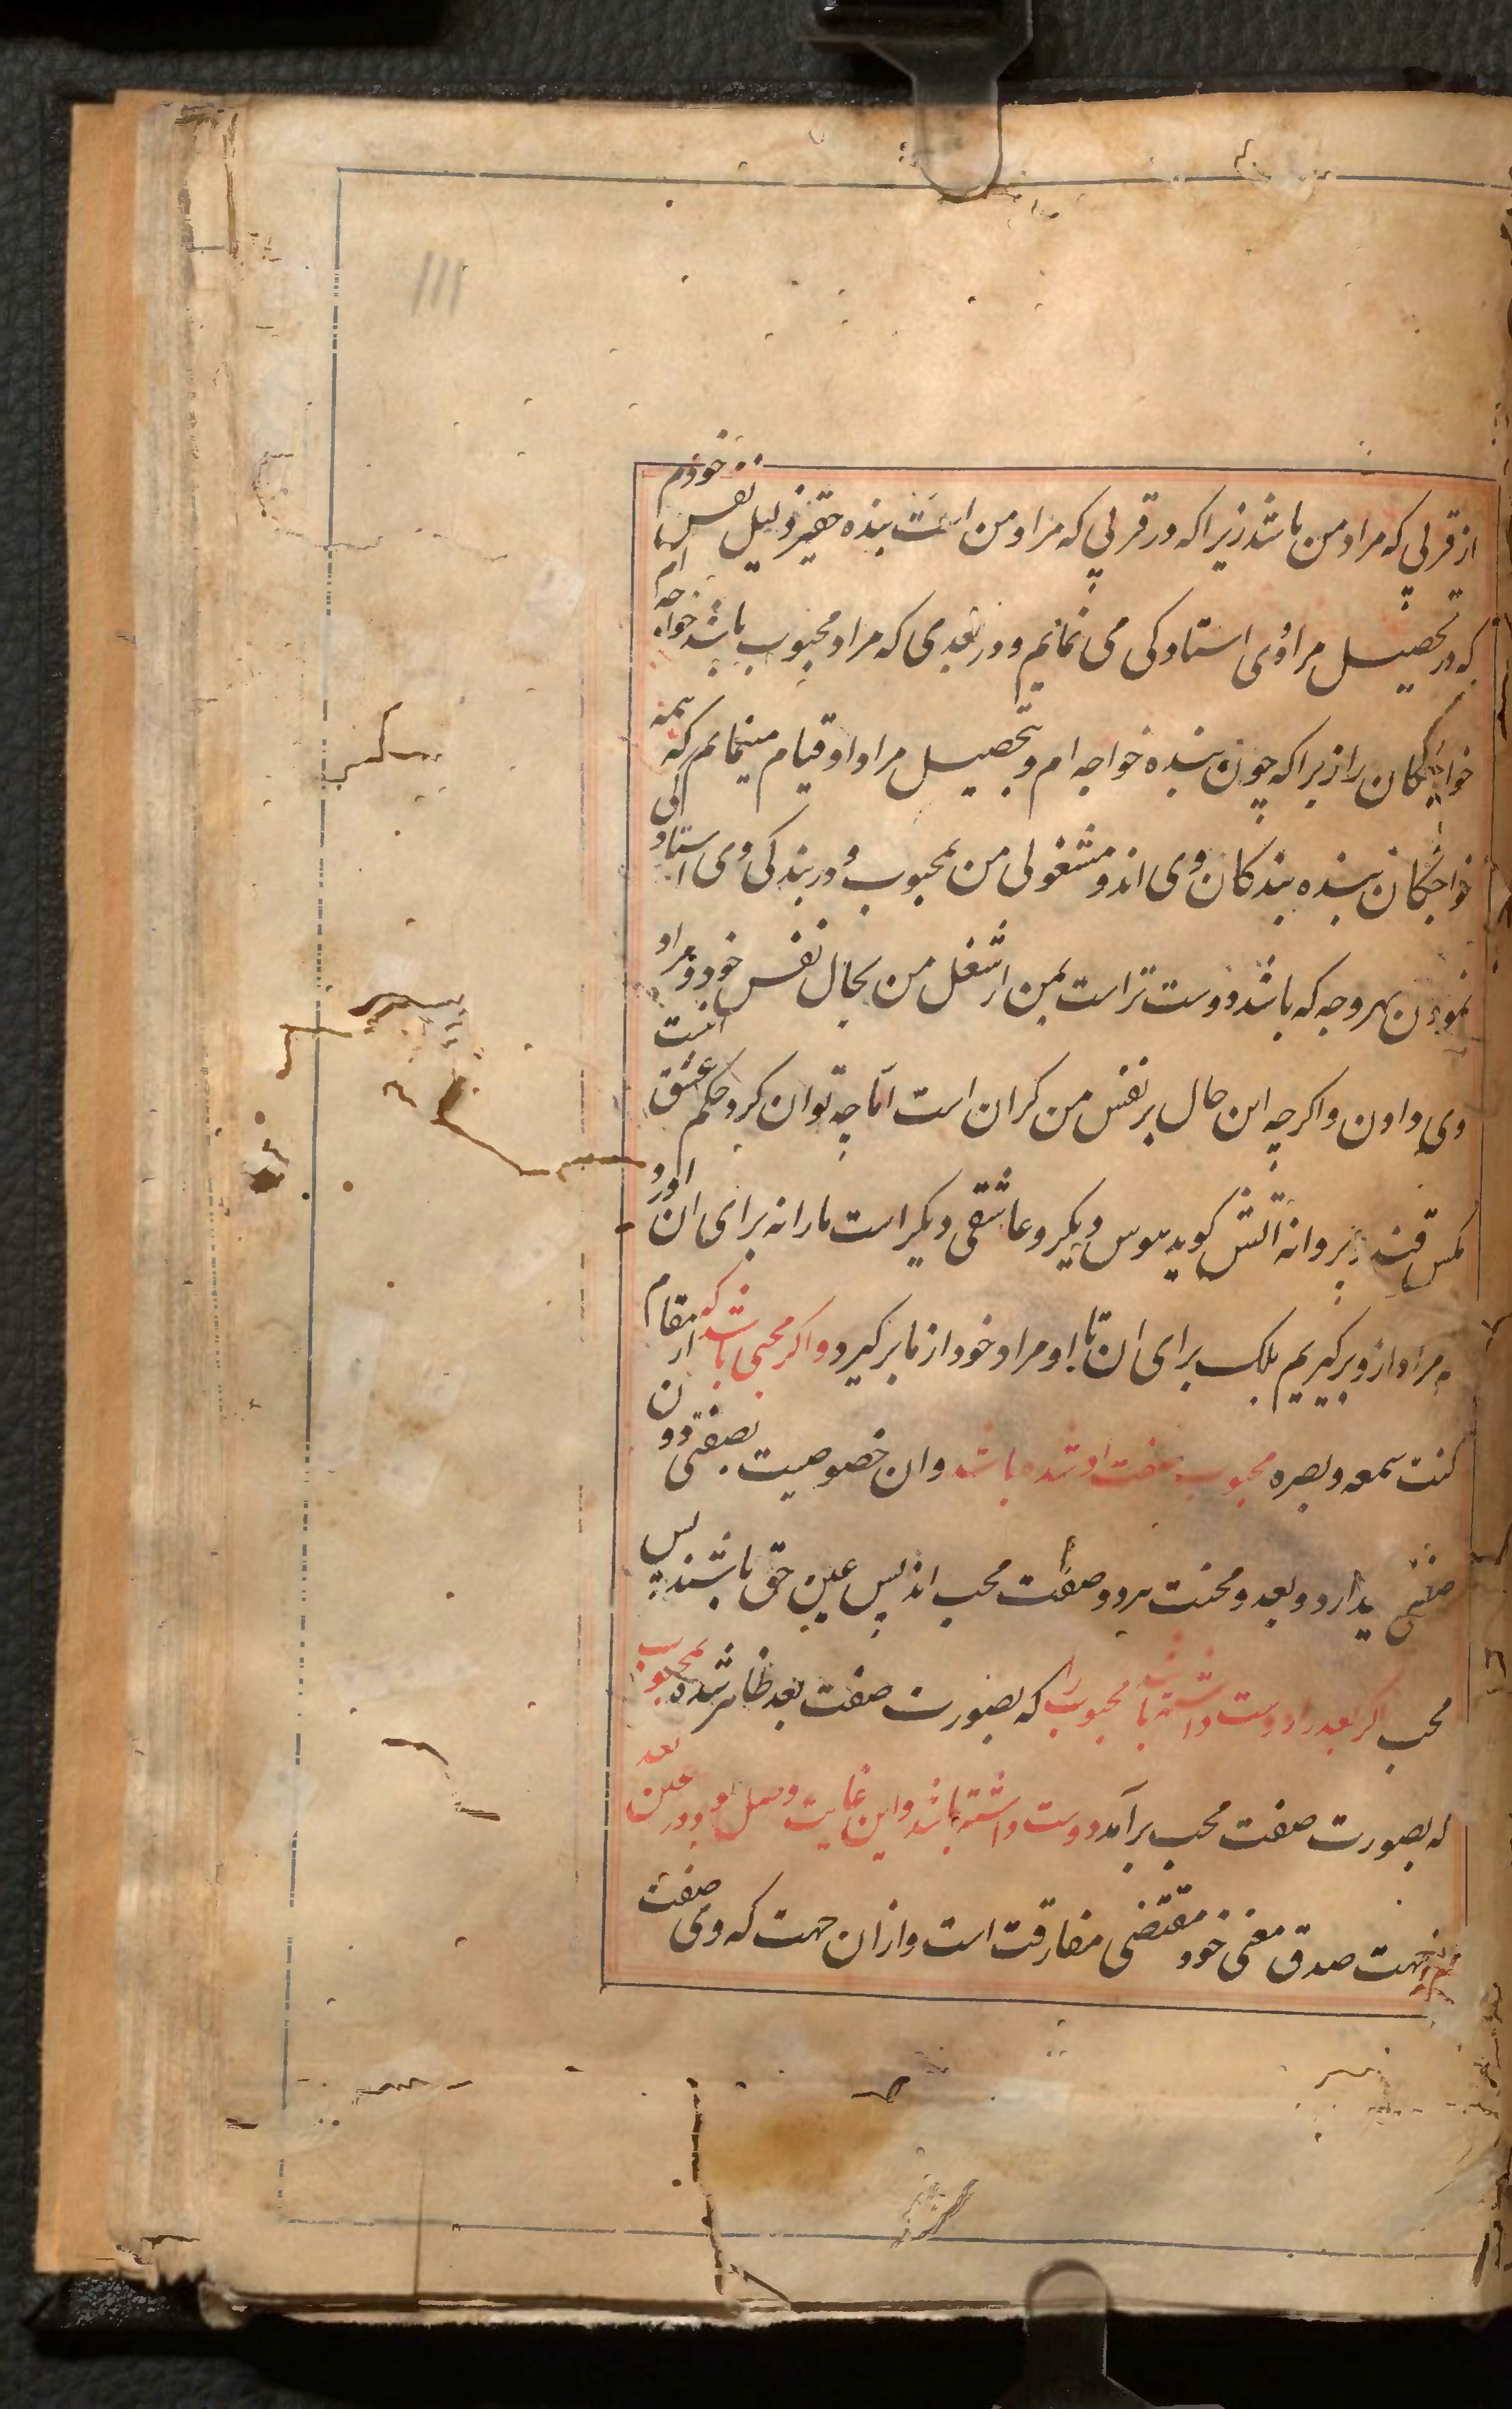 111
از قربی که مراد من باشد زیرا که در قربی که مراد من است بنده حقیر ذلیل نفس خودم
که در تحصیل مراد وی استادکی می نمایم و در بعدی که مراد محبوب باشد خواجه ام
خواجکان را زیرا که چون بنده خواجه ام و بتحصیل مراد او قیام مینمایم که همه
خواجکان بنده بندکان وی اند و مشغولی من بمحبوب و در بندکی وی استادکی
نمودن بهر وجه که باشد دوست تر است بمن از شغل من بحال نفس خود و مراد
وی دادن و اکرچه این حال بر نفس من کران است اما چه توان کرد حکم عشق اینست
مکس قند و پروانه آتش کوید هوس دیکر و عاشقی دیکر است ما را نه برای آن آورد
مراد ازو برکیریم بلک برای آن تا او مراد خود از ما برکیرد و اکر محبی باشد که از مقام
کنت سمعه و بصره محبوب صفت او شده باشد و آن خصوصیت بصفتی دون
صفتی ندارد و بعد و محنت هر دو صفت محب اند پس عین حق باشند پس
محب کر بعد را دوست داشته باشد محبوب را که بصورت صفت بعد ظاهر شده محبوب
که بصورت صفت محب برآمد دوست داشته باشد و این غایت وصل بود در عین بعد
جهت صدق معنی خود مقتضی مفارقت است و از آن جهت که وی صفت